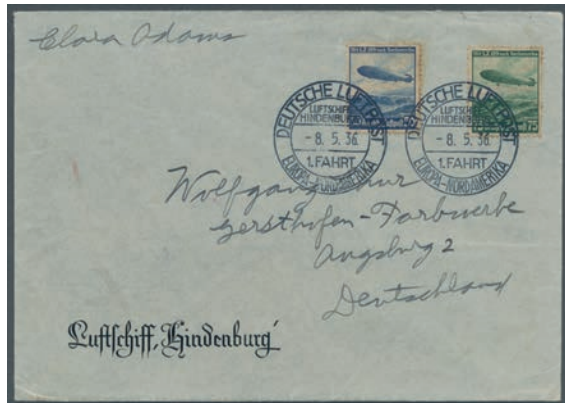 Clara Adams
DEUTSCHE LUFTPOST
LUFTSCHIFF
HINDENBURG
- 8. 5. 36.
1. FAHRT
EUROPA-NORDAMERIKA
75
DEUTSCHE LUFTPOST
LUFTSCHIFF
HINDENBURG
- 8. 5. 36.
1. FAHRT
EUROPA-NORDAMERIKA
Wolfgang
Gersthofen-Farbwerke
Augsburg 2
Deutschland
Luftschiff „Hindenburg“